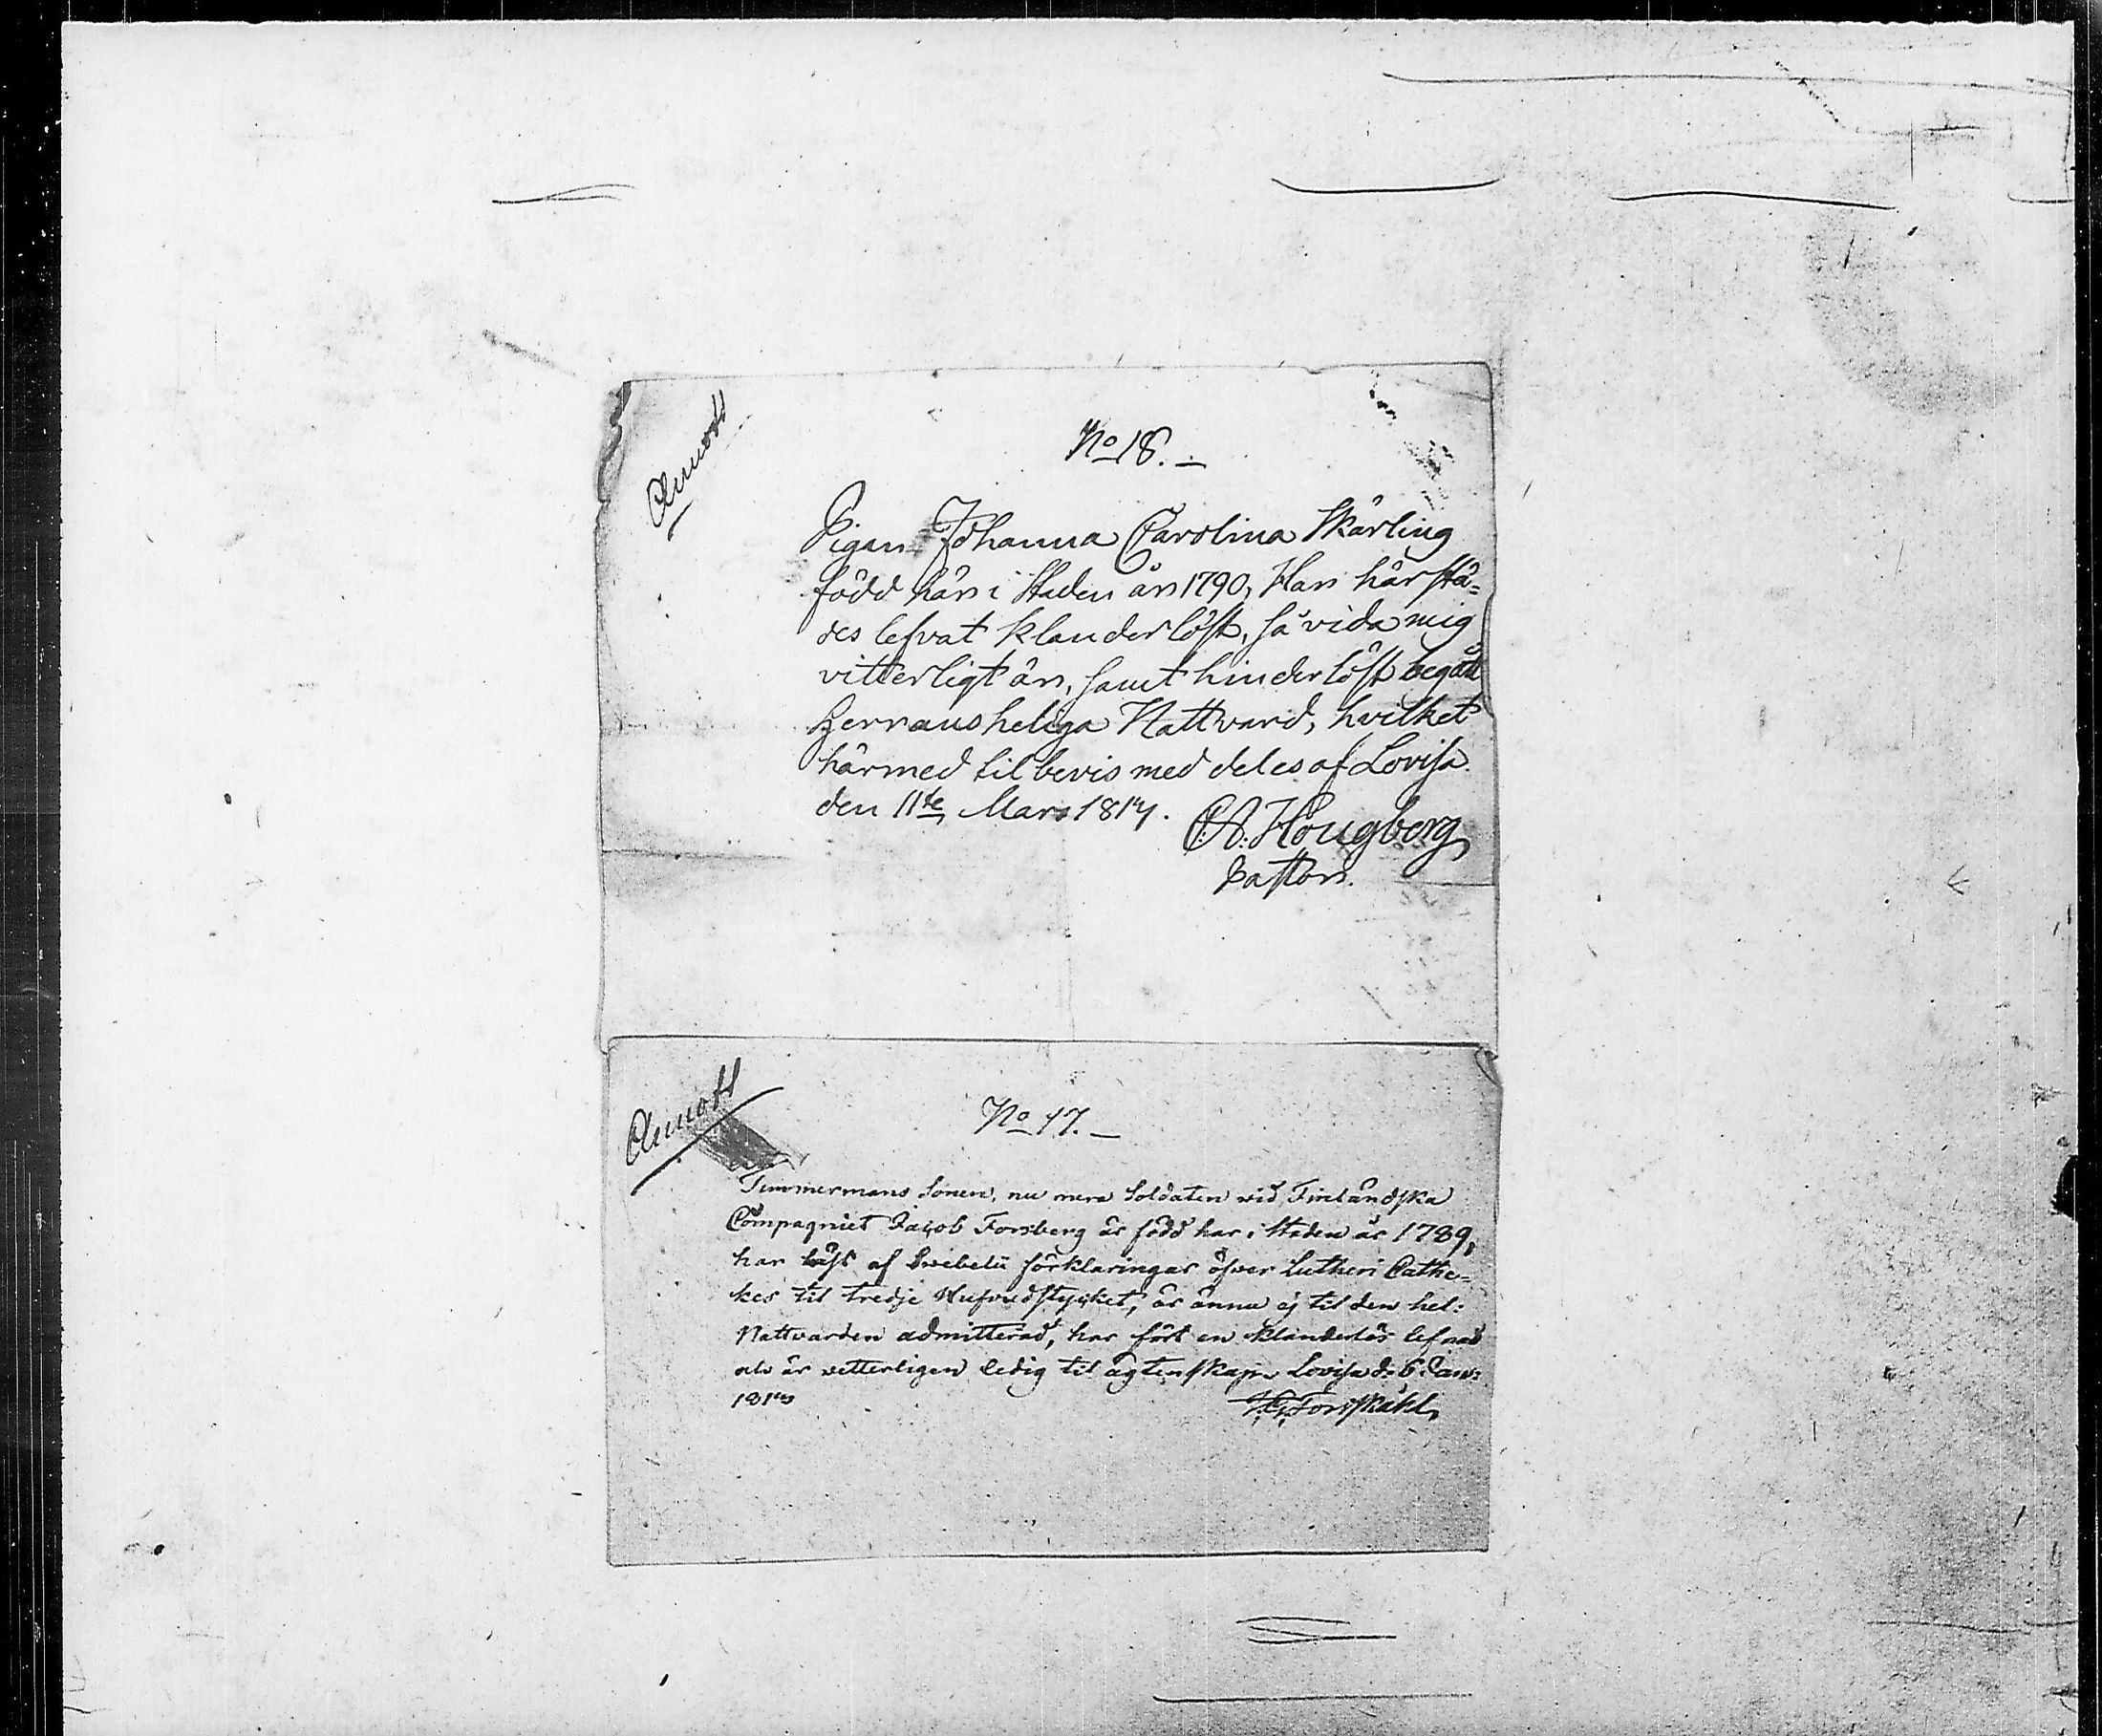 Annott
No 18.
Pigan Johanna Carolina Skårling
född här i Staden år 1790, Har härstä-
des lefvat klanderlöst, så vida mig
vitterligt är, samt hinderlöst begått
Herrans heliga Nattvard, hvilket
härmed til bevis meddeles af Lovisa
den 11te Mars 1817.
C.A. Hougberg
Pastor.
Annott
No 17.
Timmermans Sonen, nu mera Soldaten wid Finländska
Compagniet Jacob Forsberg är född här i Staden år 1789,
har läst af Swebelii förklaringar öfver Lutheri Cathe-
kes til tredje Hufvudstycket, är ännu ej til den hel:
Nattvarden admitterad, har fört en klanderlös lefnad
och är vetterligen ledig til ägtenskap. Lovisa d. 6 Jan:
1817
Forsskåhl